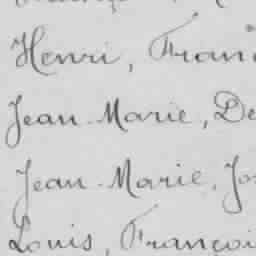 Henri, Fran
Jean-Marie, De
Jean-Marie, Jo
Louis, Françoi